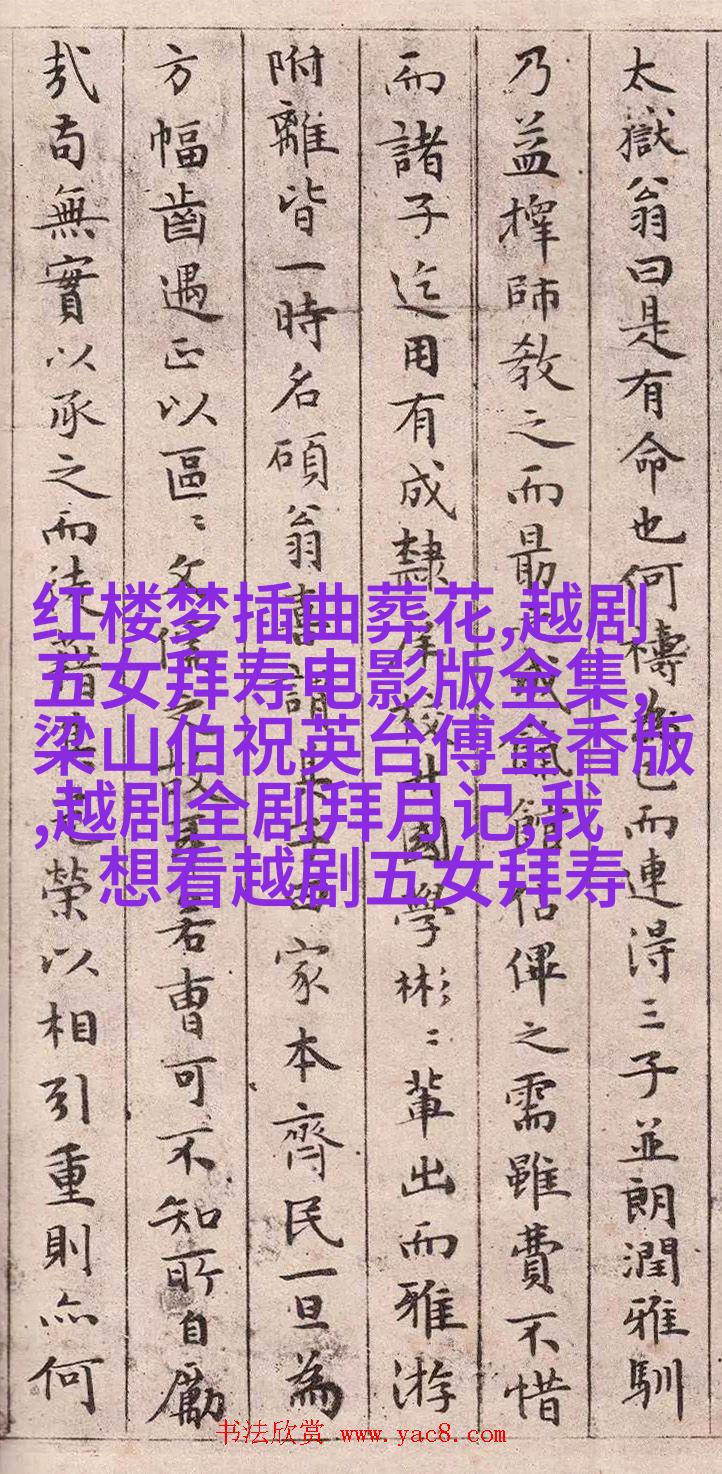 太嶽翁曰是有命也何禱為已而連得三子並朗潤雅馴
乃益擇師教之而最館之需雖費不惜
而諸子迄用有成隸庠校升國學彬〻輩出而雅游
附離皆一時名碩翁喜謂家本齊民一旦為
方幅齒遇正以區〻文儒之故若曹可不知所自勵
哉苟無實以承之而徒藉榮以相引重則亦何
红楼梦插曲葬花,越剧
五女拜寿电影版全集,
梁山伯祝英台傅全香版
,越剧全剧拜月记,我
想看越剧五女拜寿
书法欣赏 www.yac8.com